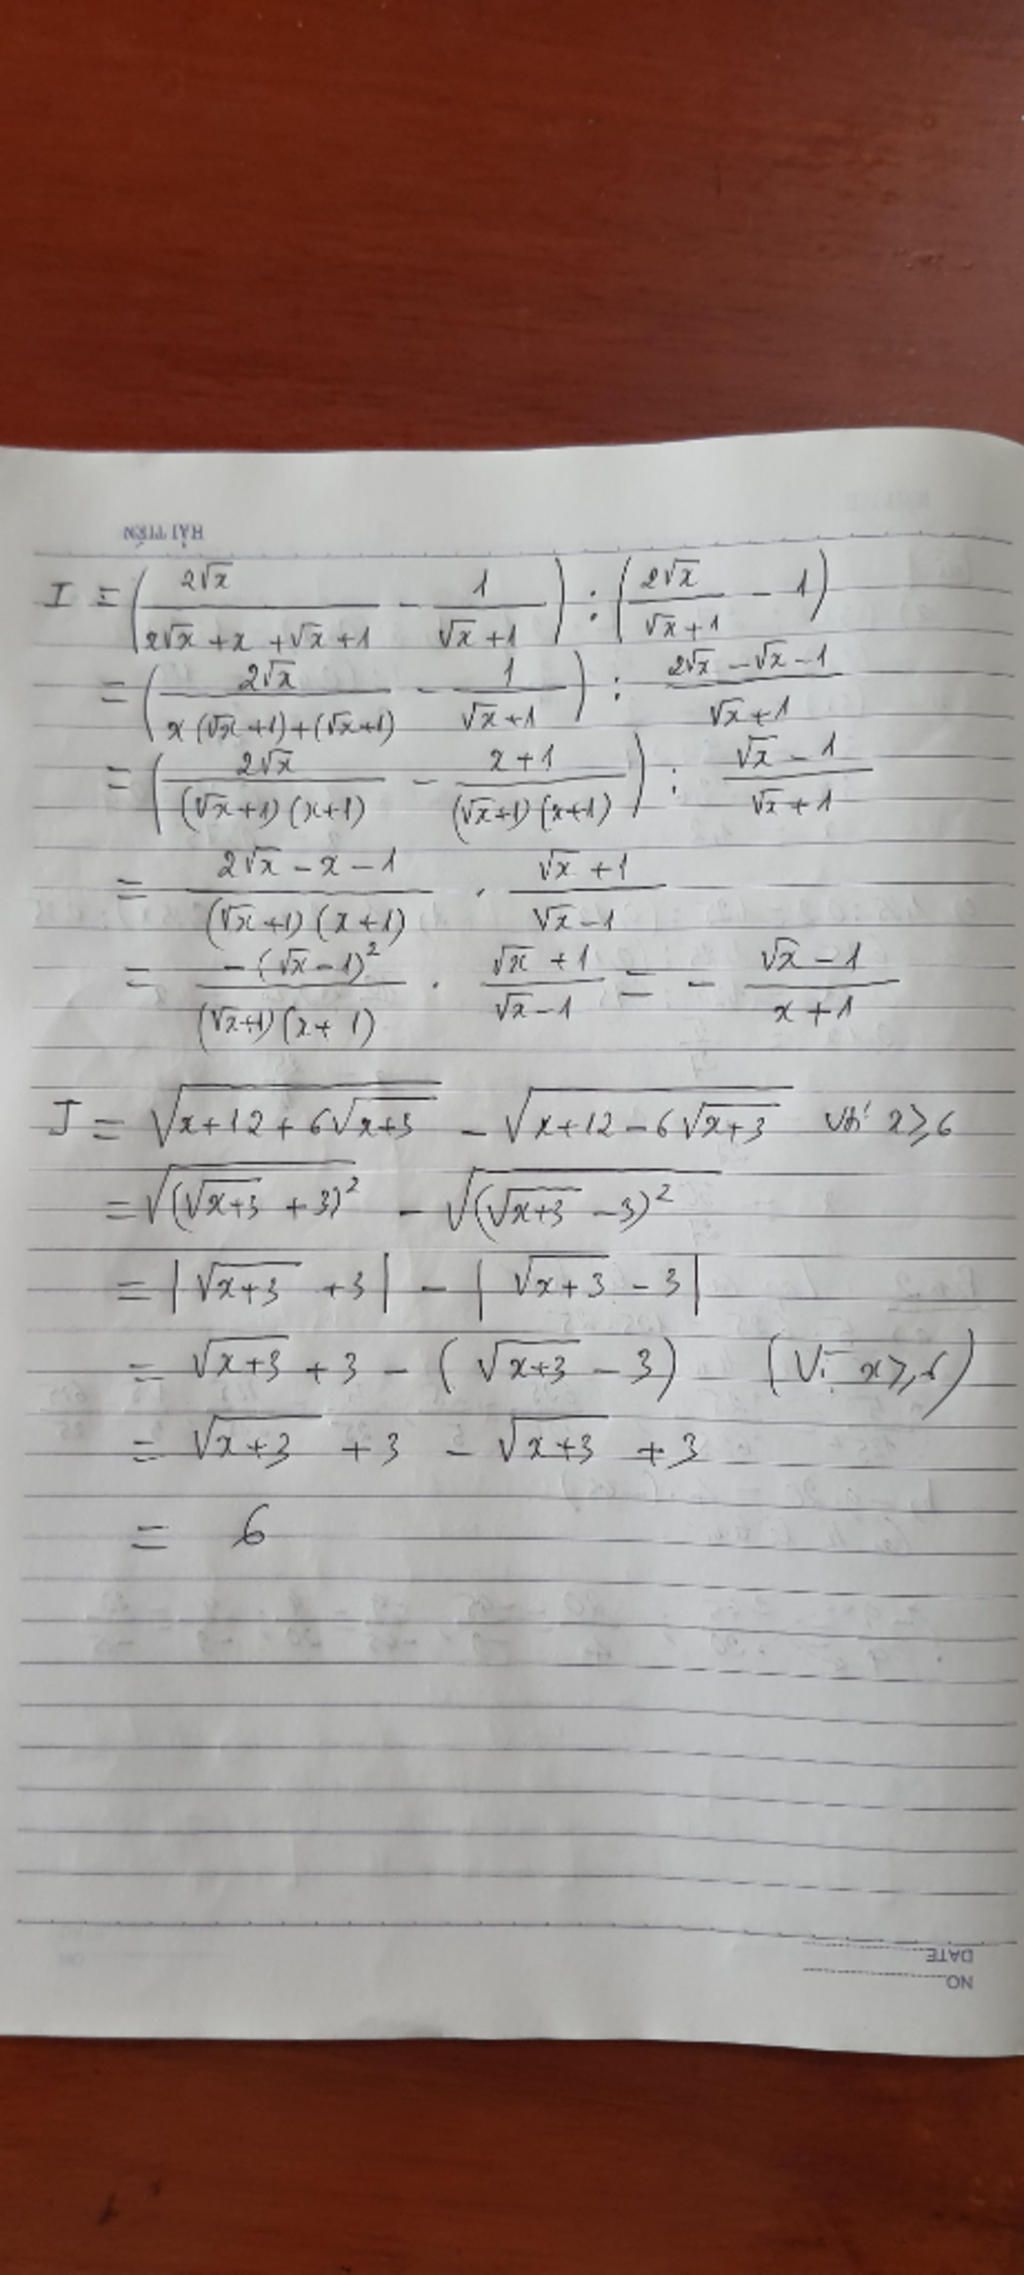 HẢI TIẾN
I = (2√x / (x√x + x + √x + 1) - 1 / (√x + 1)) : (2√x / (√x + 1) - 1)
= (2√x / (x(√x + 1) + (√x + 1)) - 1 / (√x + 1)) : (2√x - √x - 1) / (√x + 1)
= (2√x / ((√x + 1)(x + 1)) - (x + 1) / ((√x + 1)(x + 1))) : (√x - 1) / (√x + 1)
= (2√x - x - 1) / ((√x + 1)(x + 1)) . (√x + 1) / (√x - 1)
= -(√x - 1)² / ((√x + 1)(x + 1)) . (√x + 1) / (√x - 1) = - (√x - 1) / (x + 1)
J = √(x + 12 + 6√(x + 3)) - √(x + 12 - 6√(x + 3)) với x ≥ 6
= √((√(x + 3) + 3)²) - √((√(x + 3) - 3)²)
= |√(x + 3) + 3| - |√(x + 3) - 3|
= √(x + 3) + 3 - (√(x + 3) - 3) (Vì x ≥ 6)
= √(x + 3) + 3 - √(x + 3) + 3
= 6
DATE
NO